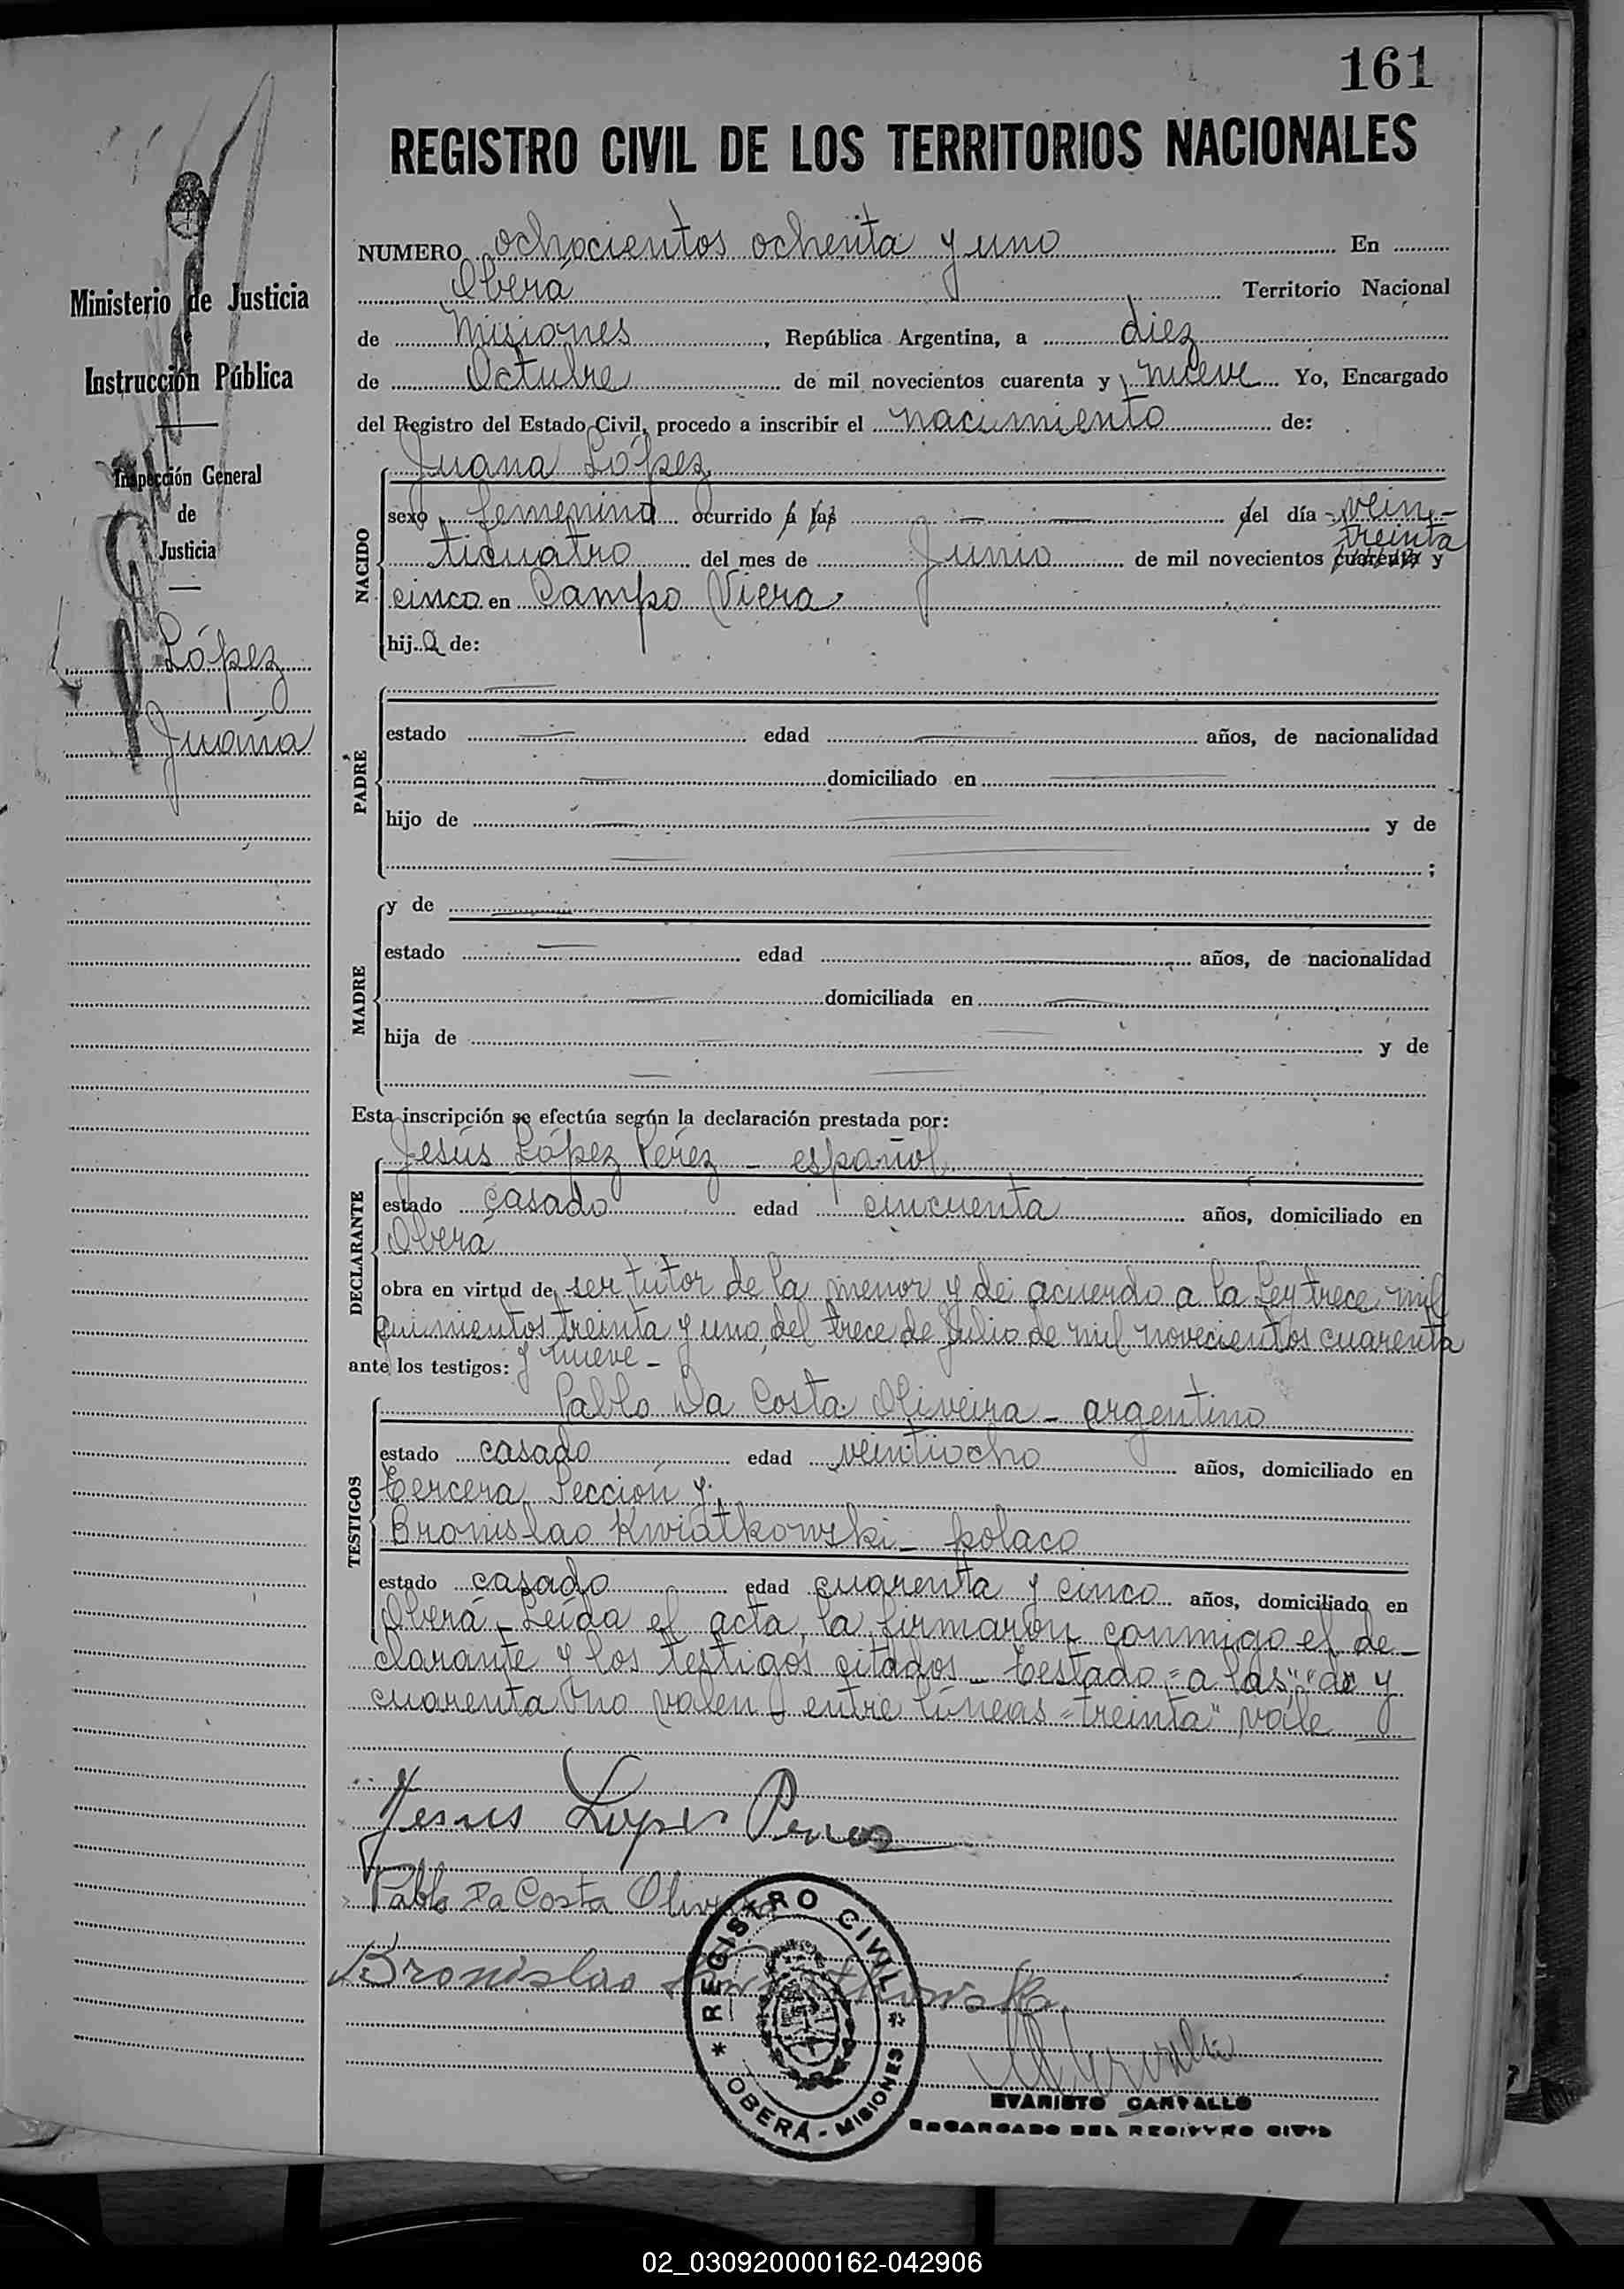 161
REGISTRO CIVIL DE LOS TERRITORIOS NACIONALES
Ministerio de Justicia
Instrucción Pública
Inspección General
de
Justicia
López
Juana
NUMERO ochocientos ochenta y uno En
Oberá Territorio Nacional
de Misiones, República Argentina, a diez
de Octubre de mil novecientos cuarenta y nueve Yo, Encargado
del Registro del Estado Civil, procedo a inscribir el nacimiento de:
NACIDO
Juana López
sexo femenino ocurrido a las — — del día vein-
treinta
ticuatro del mes de Junio de mil novecientos cuarenta y
cinco en Campo Viera
hija de:
PADRE
estado — edad — años, de nacionalidad
— domiciliado en —
hijo de — y de
— ;
MADRE
y de —
estado — edad — años, de nacionalidad
— domiciliada en —
hija de — y de
—
Esta inscripción se efectúa según la declaración prestada por:
DECLARANTE
Jesús López Pérez - español
estado casado edad cincuenta años, domiciliado en
Oberá
obra en virtud de ser tutor de la menor y de acuerdo a la Ley trece mil
quinientos treinta y uno, del trece de Julio de mil novecientos cuarenta
ante los testigos: y nueve -
TESTIGOS
Pablo Da Costa Oliveira - argentino
estado casado edad veintiocho años, domiciliado en
Tercera Sección y
Bronislao Kwiatkowski - polaco
estado casado edad cuarenta y cinco años, domiciliado en
Oberá - Leída el acta, la firmaron conmigo el de-
clarante y los testigos citados - Testado = a las, "d" y
cuarenta no valen - entre líneas = treinta" vale
Jesus Lopez Perez
Pablo Da Costa Oliveira
Bronislao Kwiatkowski
REGISTRO CIVIL
* OBERÁ - MISIONES *
EVARISTO CARVALLO
ENCARGADO DEL REGISTRO CIVIL
02_030920000162-042906